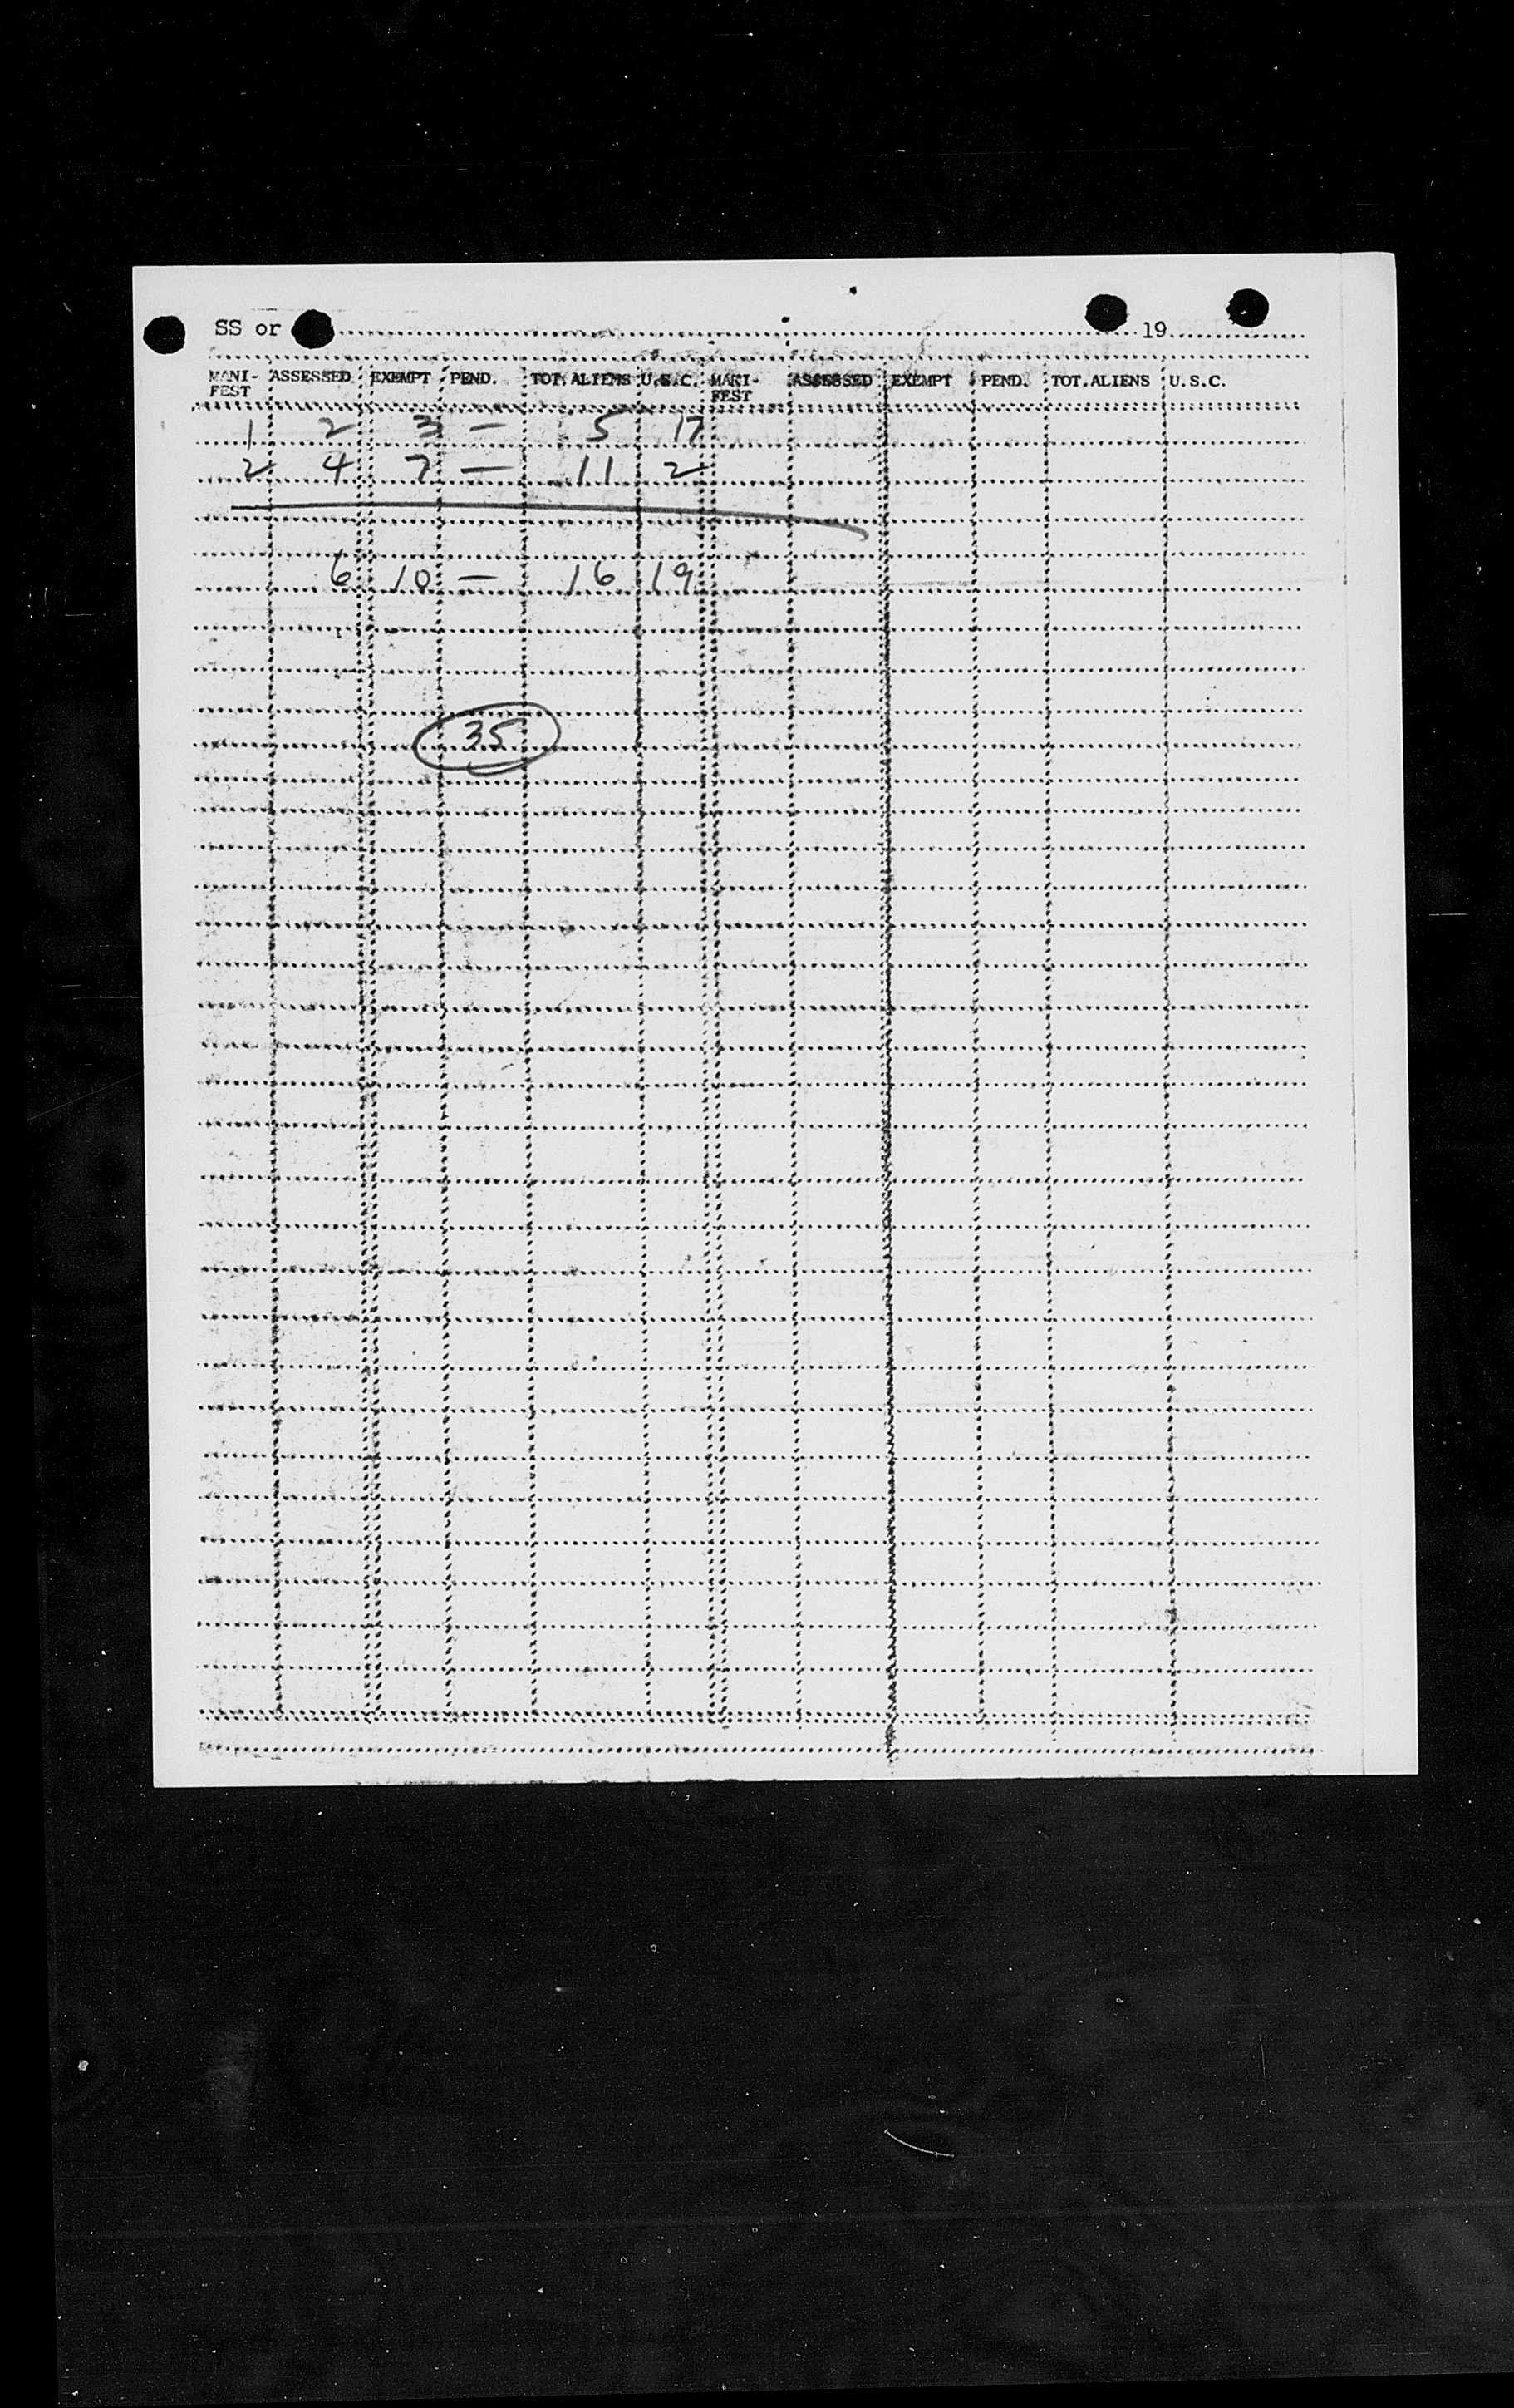 SS or 19
MANI- ASSESSED EXEMPT PEND. TOT. ALIENS U.S.C. MANI- ASSESSED EXEMPT PEND. TOT.ALIENS U.S.C.
FEST FEST
1 2 3 — 5 17
2 4 7 — 11 2
6 10 — 16 19
35